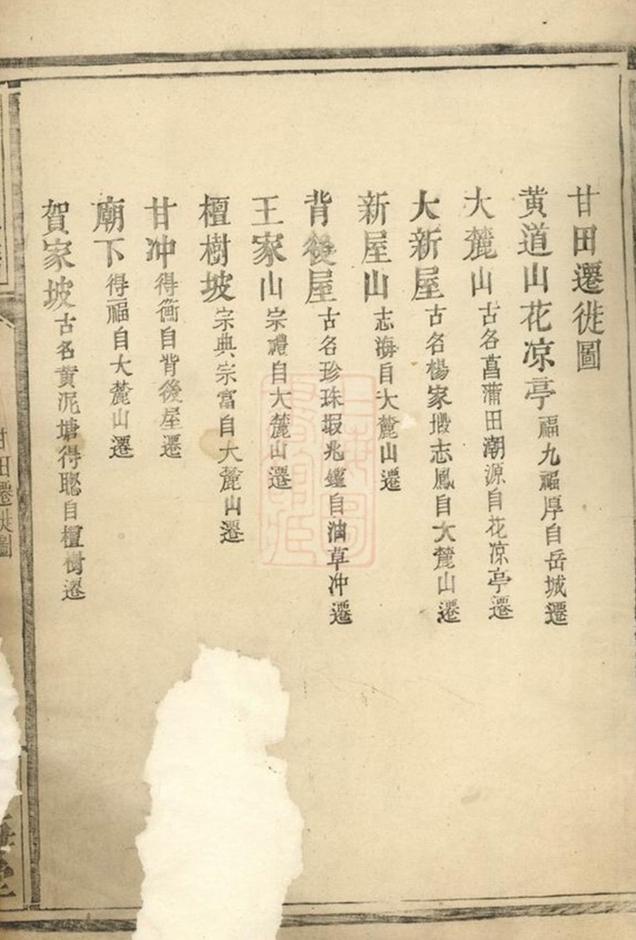 甘田遷徙圖
黄道山花凉亭福九福厚自岳城遷
大麓山古名菖蒲田潮源自花凉亭遷
大新屋古名楊家塅志鳳自大麓山遷
新屋山志海自大麓山遷
背後屋古名珍珠塅兆鑑自油草冲遷
王家山宗禮自大麓山遷
檀樹坡宗典宗富自大麓山遷
甘冲得衡自背後屋遷
廟下得福自大麓山遷
賀家坡古名黄泥塘得聰自檀樹遷
甘田遷徙圖
堂